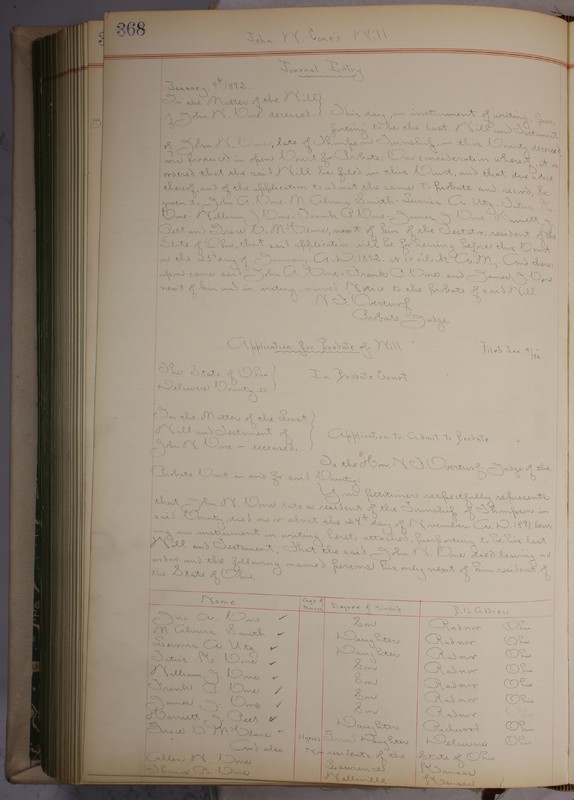 368
John N. Cone's Will
Journal Entry
January 9th 1892.
In the Matter of the Will
of John N. Cone deceased. This day an instrument of writing, pur-
porting to be the last Will and Testament
of John N. Cone, late of Thompson Township in this County deceased
was produced in open Court for Probate. On consideration whereof, it is
ordered that the said Will be filed in this Court, and that due notice
thereof, and of the application to admit the same to Probate and record, be
given to John A. Cone M. Almira Smith
Cone William J. Cone Frank C. Cone James J. Cone Harriett J.
Peet and Grace D. next of kin of the Testator, resident of the
State of Ohio, that said application will be for hearing before this Court
on the day of January A.D. 1892. at 10 o'clock A.M. And there-
upon came said John A. Cone Frank C. Cone and James J. Cone
next of kin and in writing waived Notice to the Probate of said Will
N. F. Overturf
Probate Judge
Application for Probate of Will
Filed Jan
The State of Ohio
Delaware County ss
In Probate Court
In the Matter of the Last
Will and Testament of
John N. Cone deceased.
Application to Admit to Probate
To the Hon. N. F. Overturf Judge of the
Probate Court in and for said County:
Your petitioner respectfully represents
that John N. Cone late a resident of the Township of Thompson in
said County, died on or about the 24th day of November A.D. 1891 leav-
ing an instrument in writing, hereto attached, purporting to be his last
Will and Testament, That the said John N. Cone died leaving no
widow and the following named persons his only next of kin resident of
the State of Ohio.
Name Age of Minors Degree of Kinship P.O. Address
Jno. A. Cone Son Radnor Ohio
M. Almira Smith Daughter Radnor Ohio
A. Utz Daughter Radnor Ohio
Cone Son Radnor Ohio
William J. Cone Son Radnor Ohio
Frank C. Cone Son Radnor Ohio
James J. Cone Son Radnor Ohio
Harriett J. Peet Daughter Ohio
Grace D. Grand Daughter Delaware Ohio
And also Non residents of the State of Ohio
N. Cone Lawrence Kansas
Cone Kansas